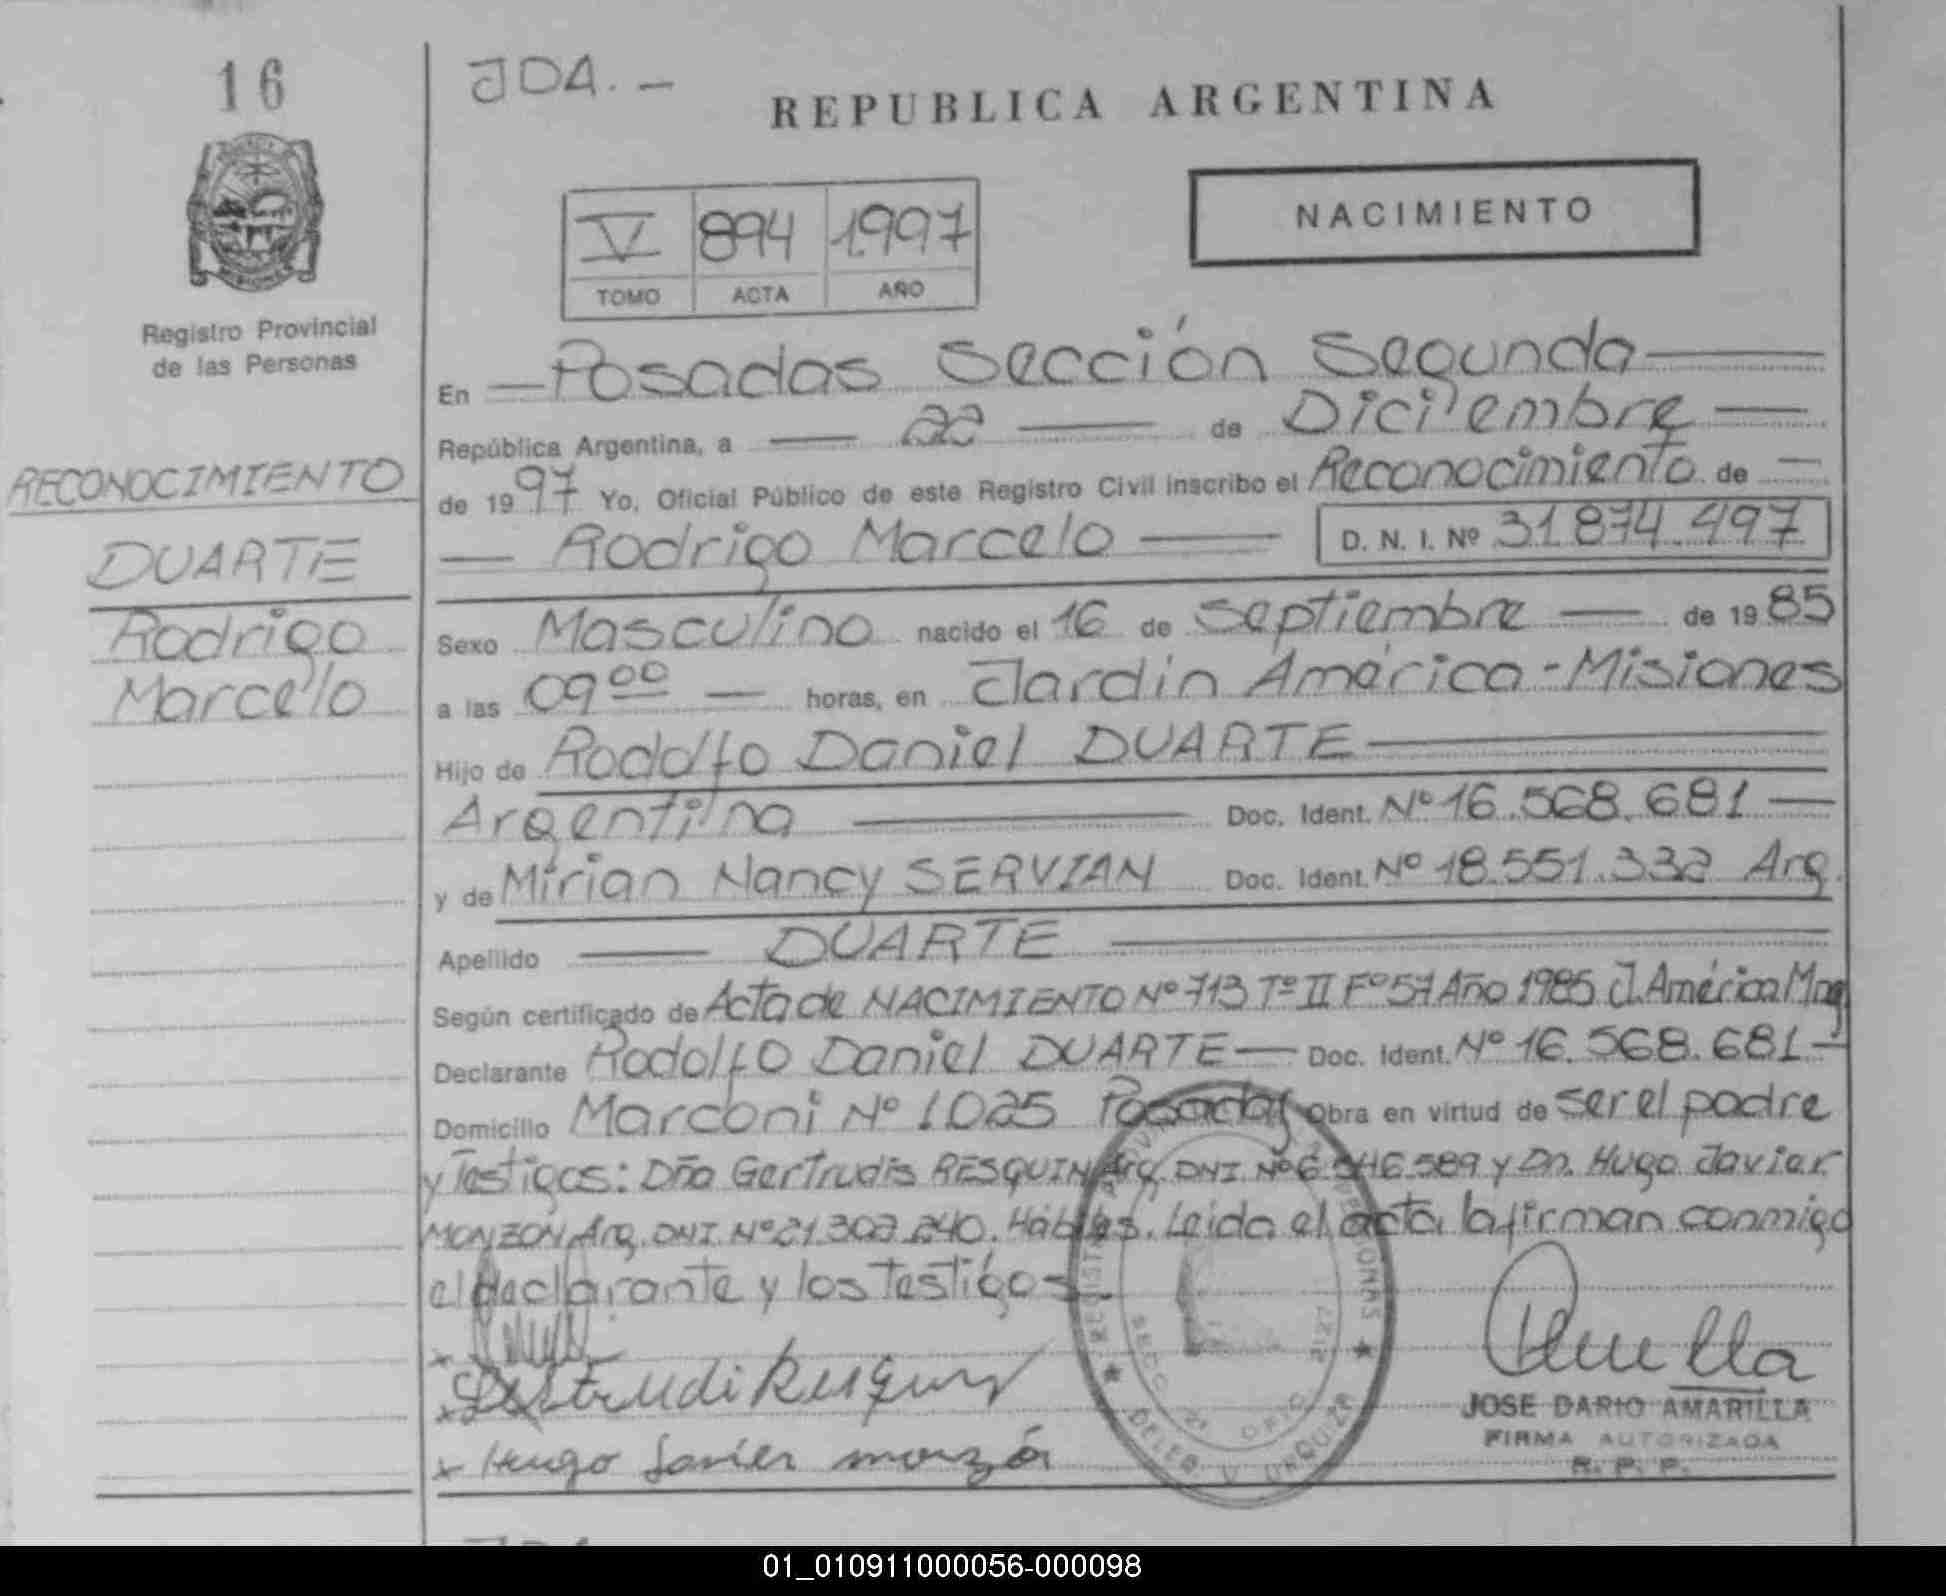 16
JDA. -
REPUBLICA ARGENTINA
NACIMIENTO
V 894 1.997
TOMO ACTA AÑO
Registro Provincial
de las Personas
RECONOCIMIENTO
DUARTE
Rodrigo
Marcelo
En Posadas Sección Segunda
República Argentina, a 22 de Diciembre
de 1997 Yo, Oficial Público de este Registro Civil inscribo el Reconocimiento de
Rodrigo Marcelo D. N. I. Nº 31.874.497
Sexo Masculino nacido el 16 de Septiembre de 1985
a las 09 00 horas, en Jardín América - Misiones
Hijo de Rodolfo Daniel DUARTE
Argentina Doc. Ident. Nº 16.568.681
y de Mirian Nancy SERVIAN Doc. Ident. Nº 18.551.332 Arg.
Apellido DUARTE
Según certificado de Acta de NACIMIENTO Nº 713 Tº II Fº 57 Año 1985 J. América Mnes
Declarante Rodolfo Daniel DUARTE Doc. Ident. Nº 16.568.681
Domicilio Marconi Nº 1.025 Posadas Obra en virtud de ser el padre
y Testigos: Dña Gertrudis RESQUIN Arg. DNI. Nº 6.546.589 y Dn. Hugo Javier
MONZON Arg. DNI. Nº 21.302.240. Hábiles. Leida el acta la firman conmigo
el declarante y los testigos.
Hugo Javier monzón
JOSE DARIO AMARILLA
FIRMA AUTORIZADA
R. P. P.
01_010911000056-000098